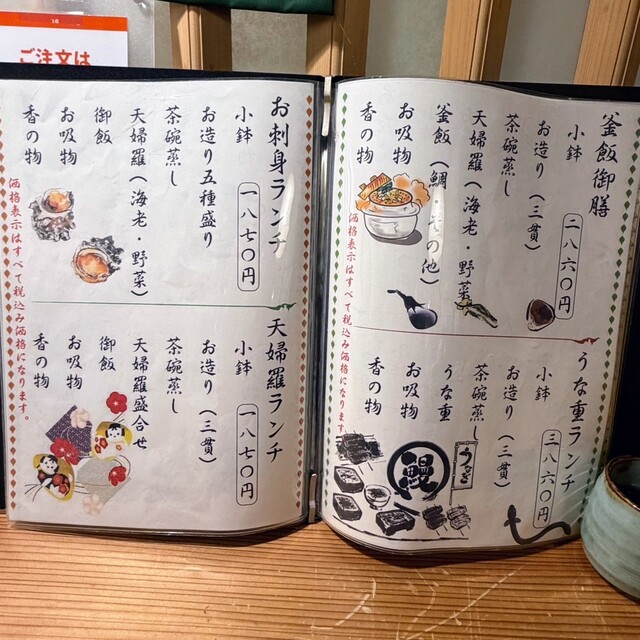 ご注文は
釜飯御膳
二八六〇円
小鉢
お造り(三貫)
茶碗蒸し
天婦羅(海老・野菜)
釜飯(鯛・その他)
お吸物
香の物
価格表示はすべて税込み価格になります。
うな重ランチ
三八六〇円
小鉢
お造り(三貫)
茶碗蒸し
うな重
お吸物
香の物
うなぎ
鰻
お刺身ランチ
一八七〇円
小鉢
お造り五種盛り
茶碗蒸し
天婦羅(海老・野菜)
御飯
お吸物
香の物
天婦羅ランチ
一八七〇円
小鉢
お造り(三貫)
茶碗蒸し
天婦羅盛合せ
御飯
お吸物
香の物
価格表示はすべて税込み価格になります。